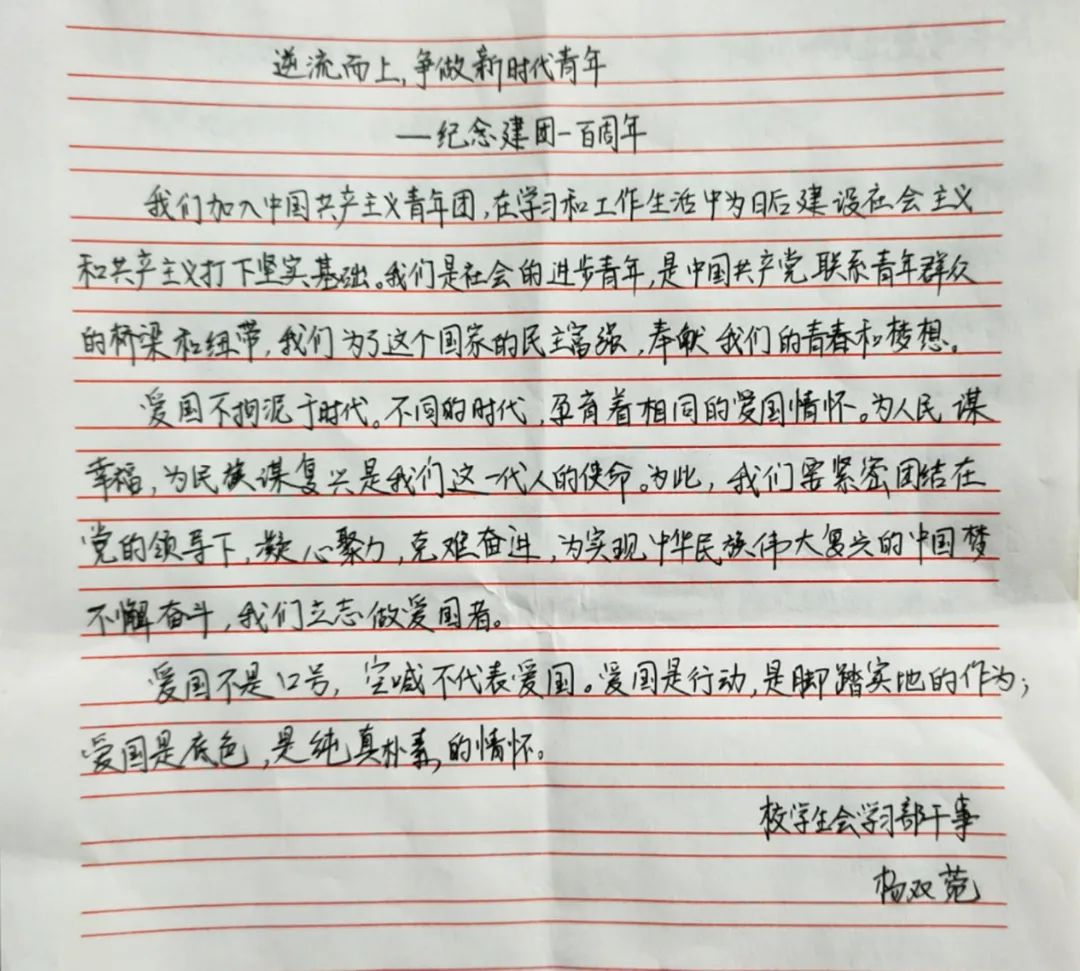 逆流而上,争做新时代青年
—纪念建团一百周年
我们加入中国共产主义青年团,在学习和工作生活中为日后建设社会主义
和共产主义打下坚实基础。我们是社会的进步青年,是中国共产党联系青年群众
的桥梁和纽带,我们为了这个国家的民主富强,奉献我们的青春和梦想。
爱国不拘泥于时代。不同的时代,孕育着相同的爱国情怀。为人民谋
幸福,为民族谋复兴是我们这一代人的使命。为此,我们要紧密团结在
党的领导下,凝心聚力,克难奋进,为实现中华民族伟大复兴的中国梦
不懈奋斗,我们立志做爱国者。
爱国不是口号,空喊不代表爱国。爱国是行动,是脚踏实地的作为;
爱国是底色,是纯真朴素的情怀。
校学生会学习部干事
杨双菀